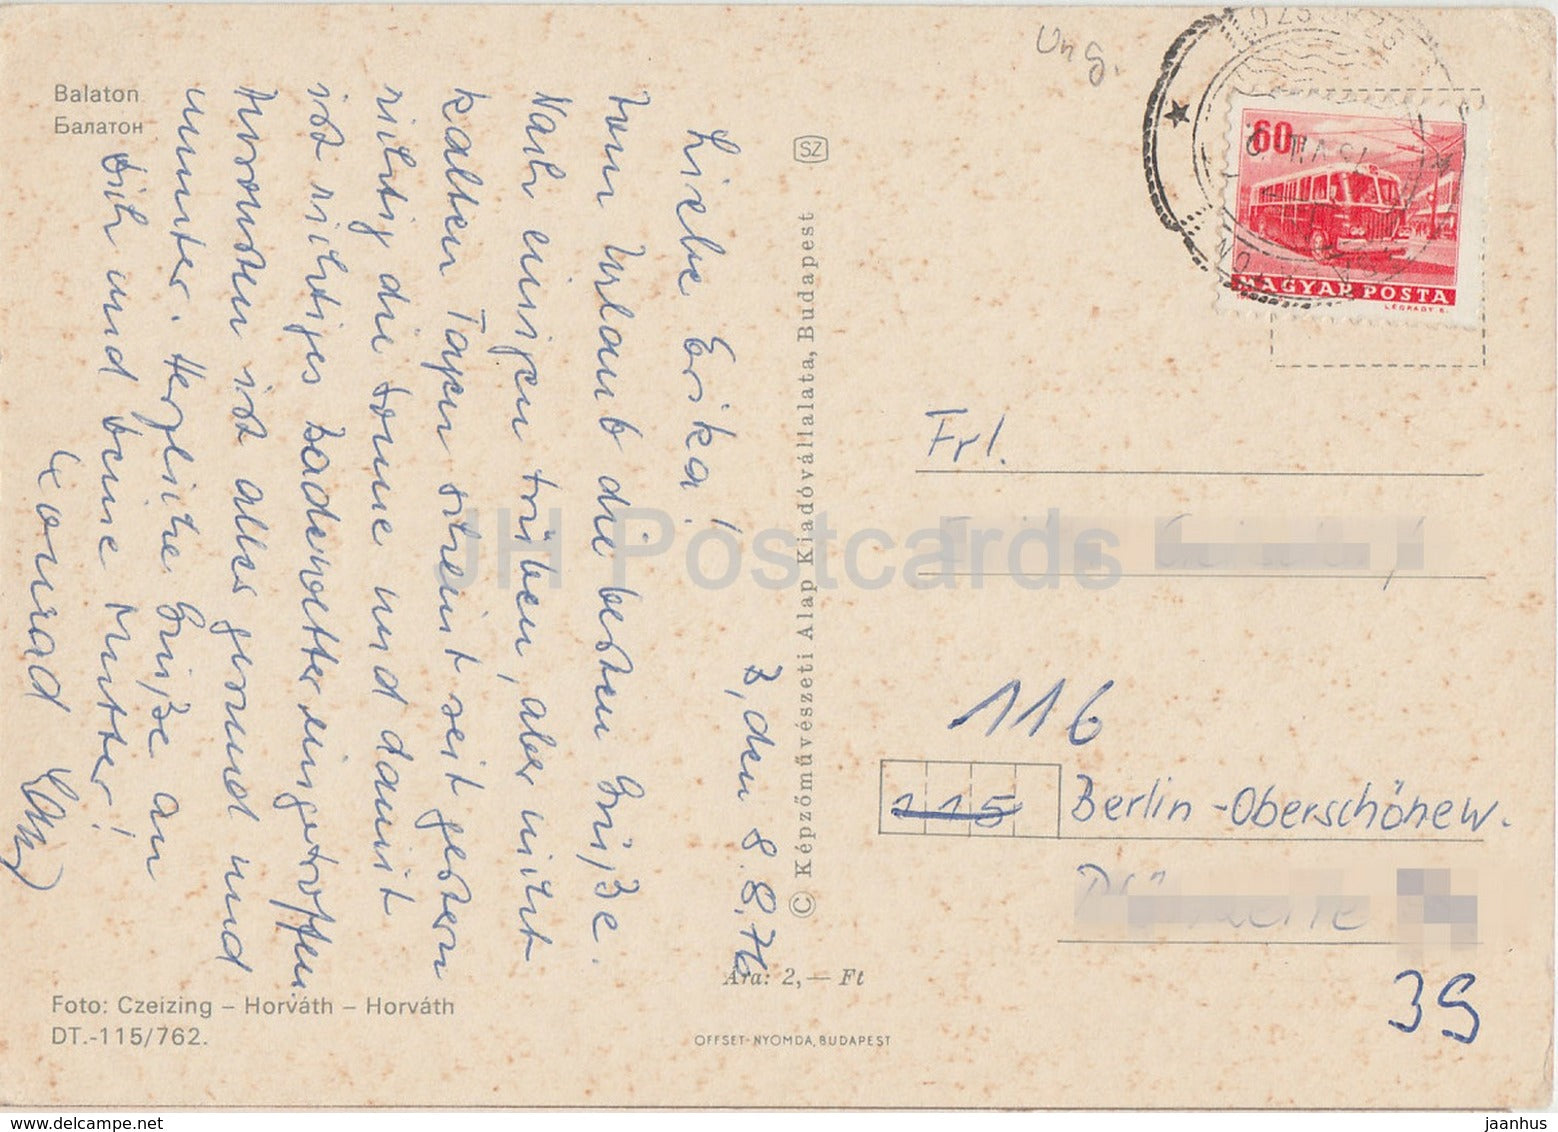 Balaton
Балатон
Z, den 8.8.76
Liebe Erika!
Vom Urlaub die besten Grüße.
Nach einigen trüben, aber nicht
kalten Tagen scheint seit gestern
richtig die Sonne und damit
ist richtiges Badewetter eingetroffen.
Ansonsten ist alles gesund und
munter. Herzliche Grüße an
Dich und Deine Mutter!
Konrad
Foto: Czeizing – Horváth – Horváth
DT.-115/762.
SZ
© Képzőművészeti Alap Kiadóvállalata, Budapest
Ára: 2,— Ft
OFFSET-NYOMDA, BUDAPEST
Ung.
60
MAGYAR POSTA
LÉGRÁDY S.
Frl.
116
115 Berlin-Oberschönew.
39
JH Postcards
www.delcampe.net
jaanhus